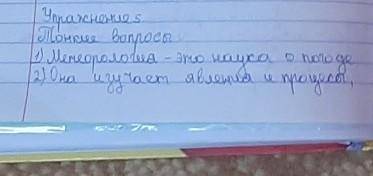 Упражнение 5
Тонкие вопросы
1) Метеорология - это наука о погоде
2) Она изучает явления и процесы,